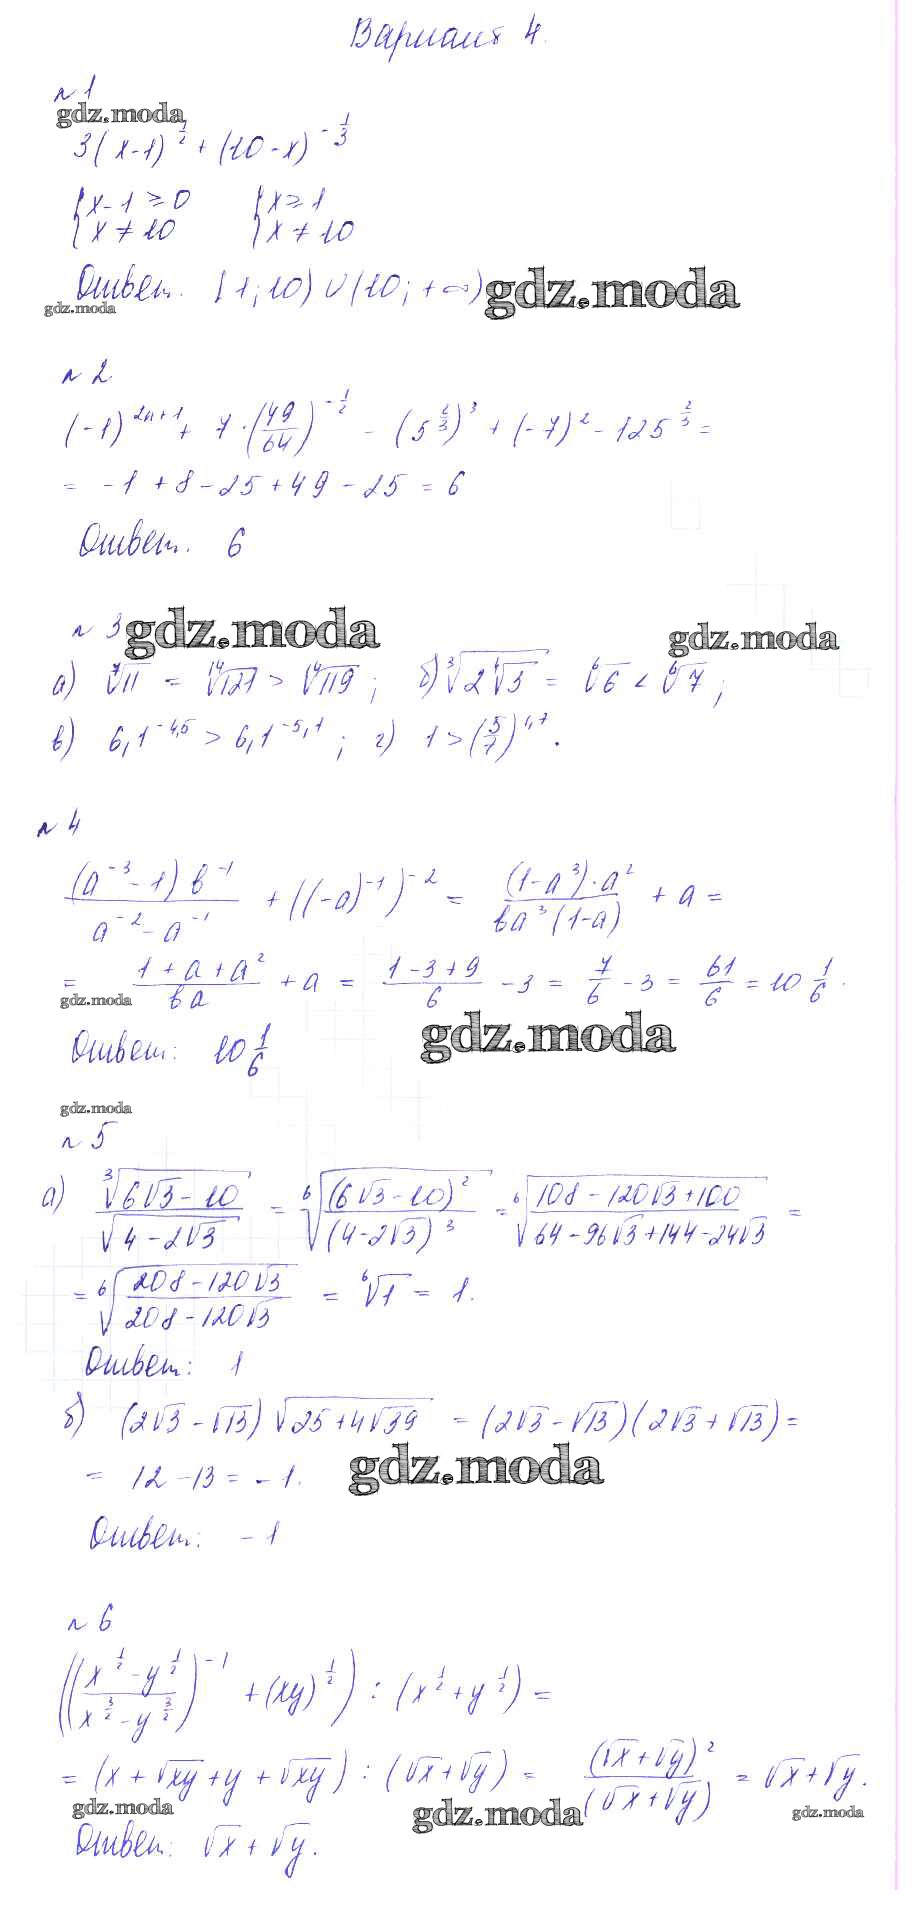 Вариант 4.
№ 1
gdz.moda
3(x-1)^{1/2} + (10-x)^{-1/3}
{x-1 ≥ 0 {x ≥ 1
{x ≠ 10 {x ≠ 10
Ответ. [1; 10) ∪ (10; +∞) gdz.moda
gdz.moda
№ 2
(-1)^{2n+1} + 7·(49/64)^{-1/2} - (5^{2/3})^3 + (-7)^2 - 125^{2/3} =
= -1 + 8 - 25 + 49 - 25 = 6
Ответ. 6
№ 3 gdz.moda gdz.moda
а) ⁷√11 = ¹⁴√121 > ¹⁴√119; б) ³√(2⁴√3) = ⁶√6 < ⁶√7;
в) 6,1^{-4,5} > 6,1^{-5,1}; г) 1 > (5/7)^{1,7}.
№ 4
(a^{-3} - 1) b^{-1} / (a^{-2} - a^{-1}) + ((-a)^{-1})^{-2} = (1-a^3)·a^2 / (ba^3(1-a)) + a =
= (1 + a + a^2)/(ba) + a = (1-3+9)/6 - 3 = 7/6 - 3 = 61/6 = 10 1/6.
gdz.moda gdz.moda
Ответ: 10 1/6
gdz.moda
№ 5
а) ³√(6√3 - 10) / √(4 - 2√3) = ⁶√((6√3 - 10)^2 / (4 - 2√3)^3) = ⁶√((108 - 120√3 + 100) / (64 - 96√3 + 144 - 24√3)) =
= ⁶√((208 - 120√3) / (208 - 120√3)) = ⁶√1 = 1.
Ответ: 1
б) (2√3 - √13) √(25 + 4√39) = (2√3 - √13)(2√3 + √13) =
= 12 - 13 = -1. gdz.moda
Ответ: -1
№ 6
(((x^{1/2} - y^{1/2}) / (x^{3/2} - y^{3/2}))^{-1} + (xy)^{1/2}) : (x^{1/2} + y^{1/2}) =
= (x + √xy + y + √xy) : (√x + √y) = (√x + √y)^2 / (√x + √y) = √x + √y.
gdz.moda gdz.moda gdz.moda
Ответ: √x + √y.